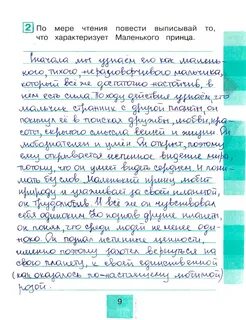 2 По мере чтения повести выписывай то,
что характеризует Маленького принца.
Сначала мы узнаём его как малень-
кого, тихого, неразговорчивого мальчика,
который всё же достаточно настойчив, в
нём есть сила. По ходу действия узнаём, что
мальчик странник с другой планеты, он
покинул её в поисках дружбы, любви, кра-
соты, скрытого смысла вещей и жизни. Он
любознателен и умён. Он открыт, поэтому
ему открывается истинное видение мира,
потому что он умеет видеть сердцем. И пони-
мать без слов. Маленький принц любит
природу и ухаживает за своей планетой,
он трудолюбив. И всё же он чувствовал
себя одиноким. Но познав другие планеты,
он понял, что среди людей не менее оди-
ноко. Он познал истинные ценности,
именно поэтому захотел вернуться на
свою планету, к своей единственной
(как оказалось по-настоящему любимой)
розой.
9